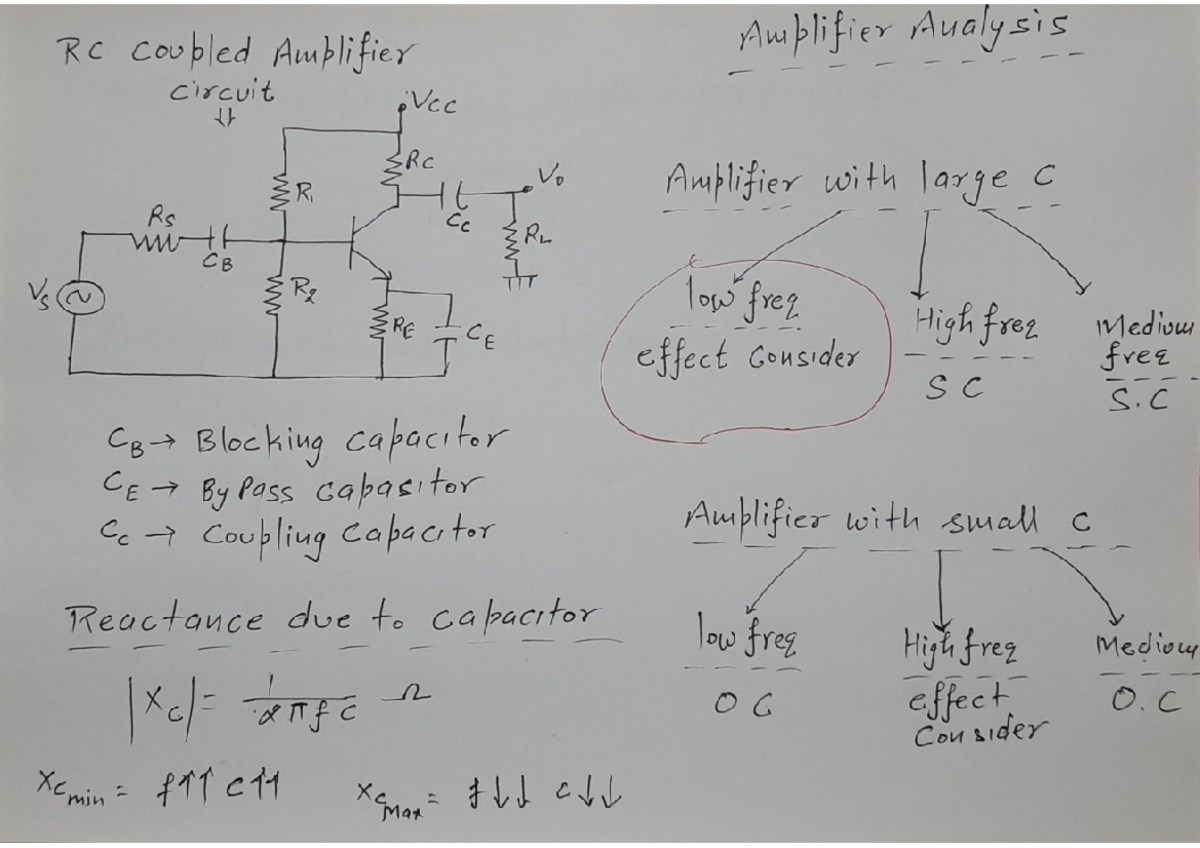 RC Coupled Amplifier
Circuit
⇓
VCC
R1
RC
CC
Vo
RL
RS
CB
VS
R2
RE
CE
CB → Blocking capacitor
CE → By Pass capasitor
Cc → Coupling Capacitor
Reactance due to capacitor
|Xc| = 1/2πfc Ω
Xc min = f↑↑ c↑↑
Xc Max = f↓↓ c↓↓
Amplifier Analysis
Amplifier with large C
low freq
effect Consider
High freq
S C
Medium
freq
S.C
Amplifier with small C
low freq
O C
High freq
effect
Consider
Medium
O.C